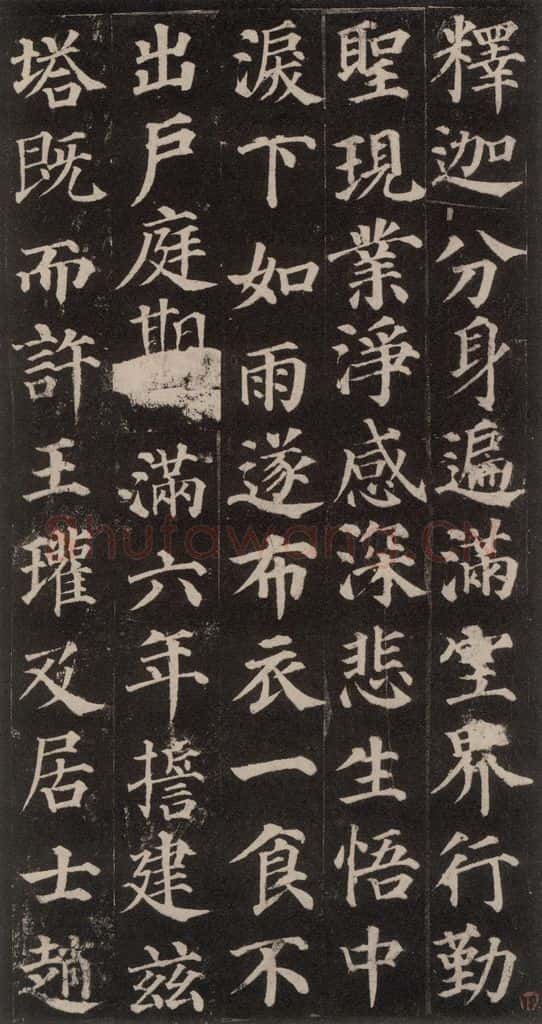 釋迦分身遍滿空界行勤
聖現業淨感深悲生悟中
淚下如雨遂布衣一食不
出戶庭期滿六年誓建茲
塔既而許王瓘及居士趙
Shufawang.cn